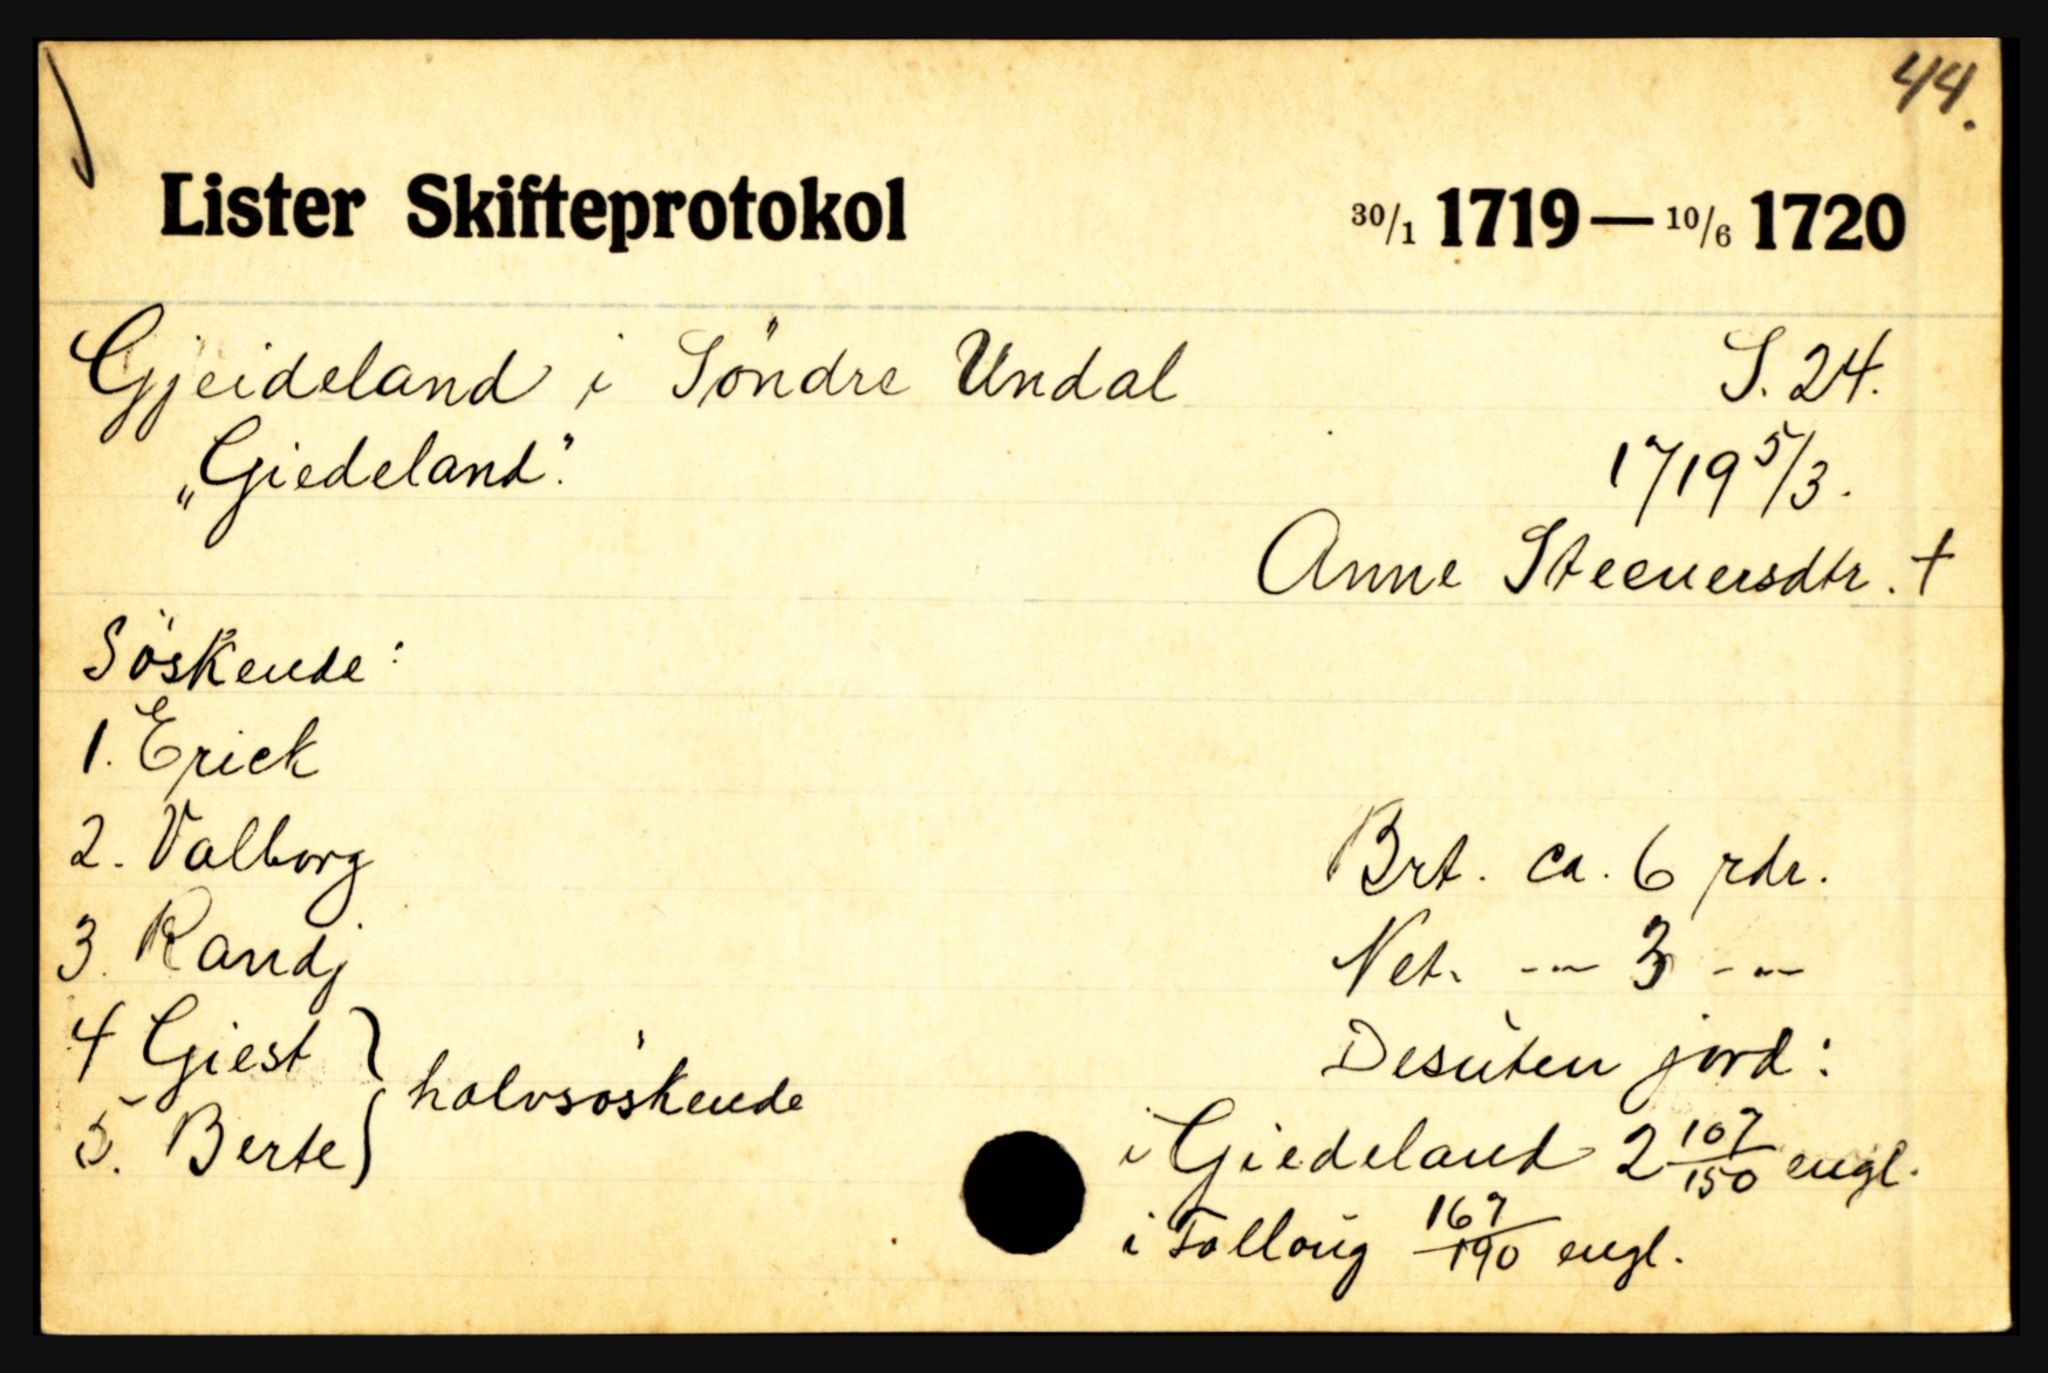 44.
Lister Skifteprotokol 30/1 1719—10/6 1720
Gjeideland i Söndre Undal S. 24.
„Giedeland". 1719 5/3.
Anne Steenersdtr. †
Söskende:
1. Erick
2. Valborg
3. Randj
4 Giest } halvsöskende
5. Berte
Brt. ca. 6 rdr.
Net. -"- 3 -"-
Desuten jord:
i Giedeland 2 107/150 engl.
i Tolloug 167/190 engl.